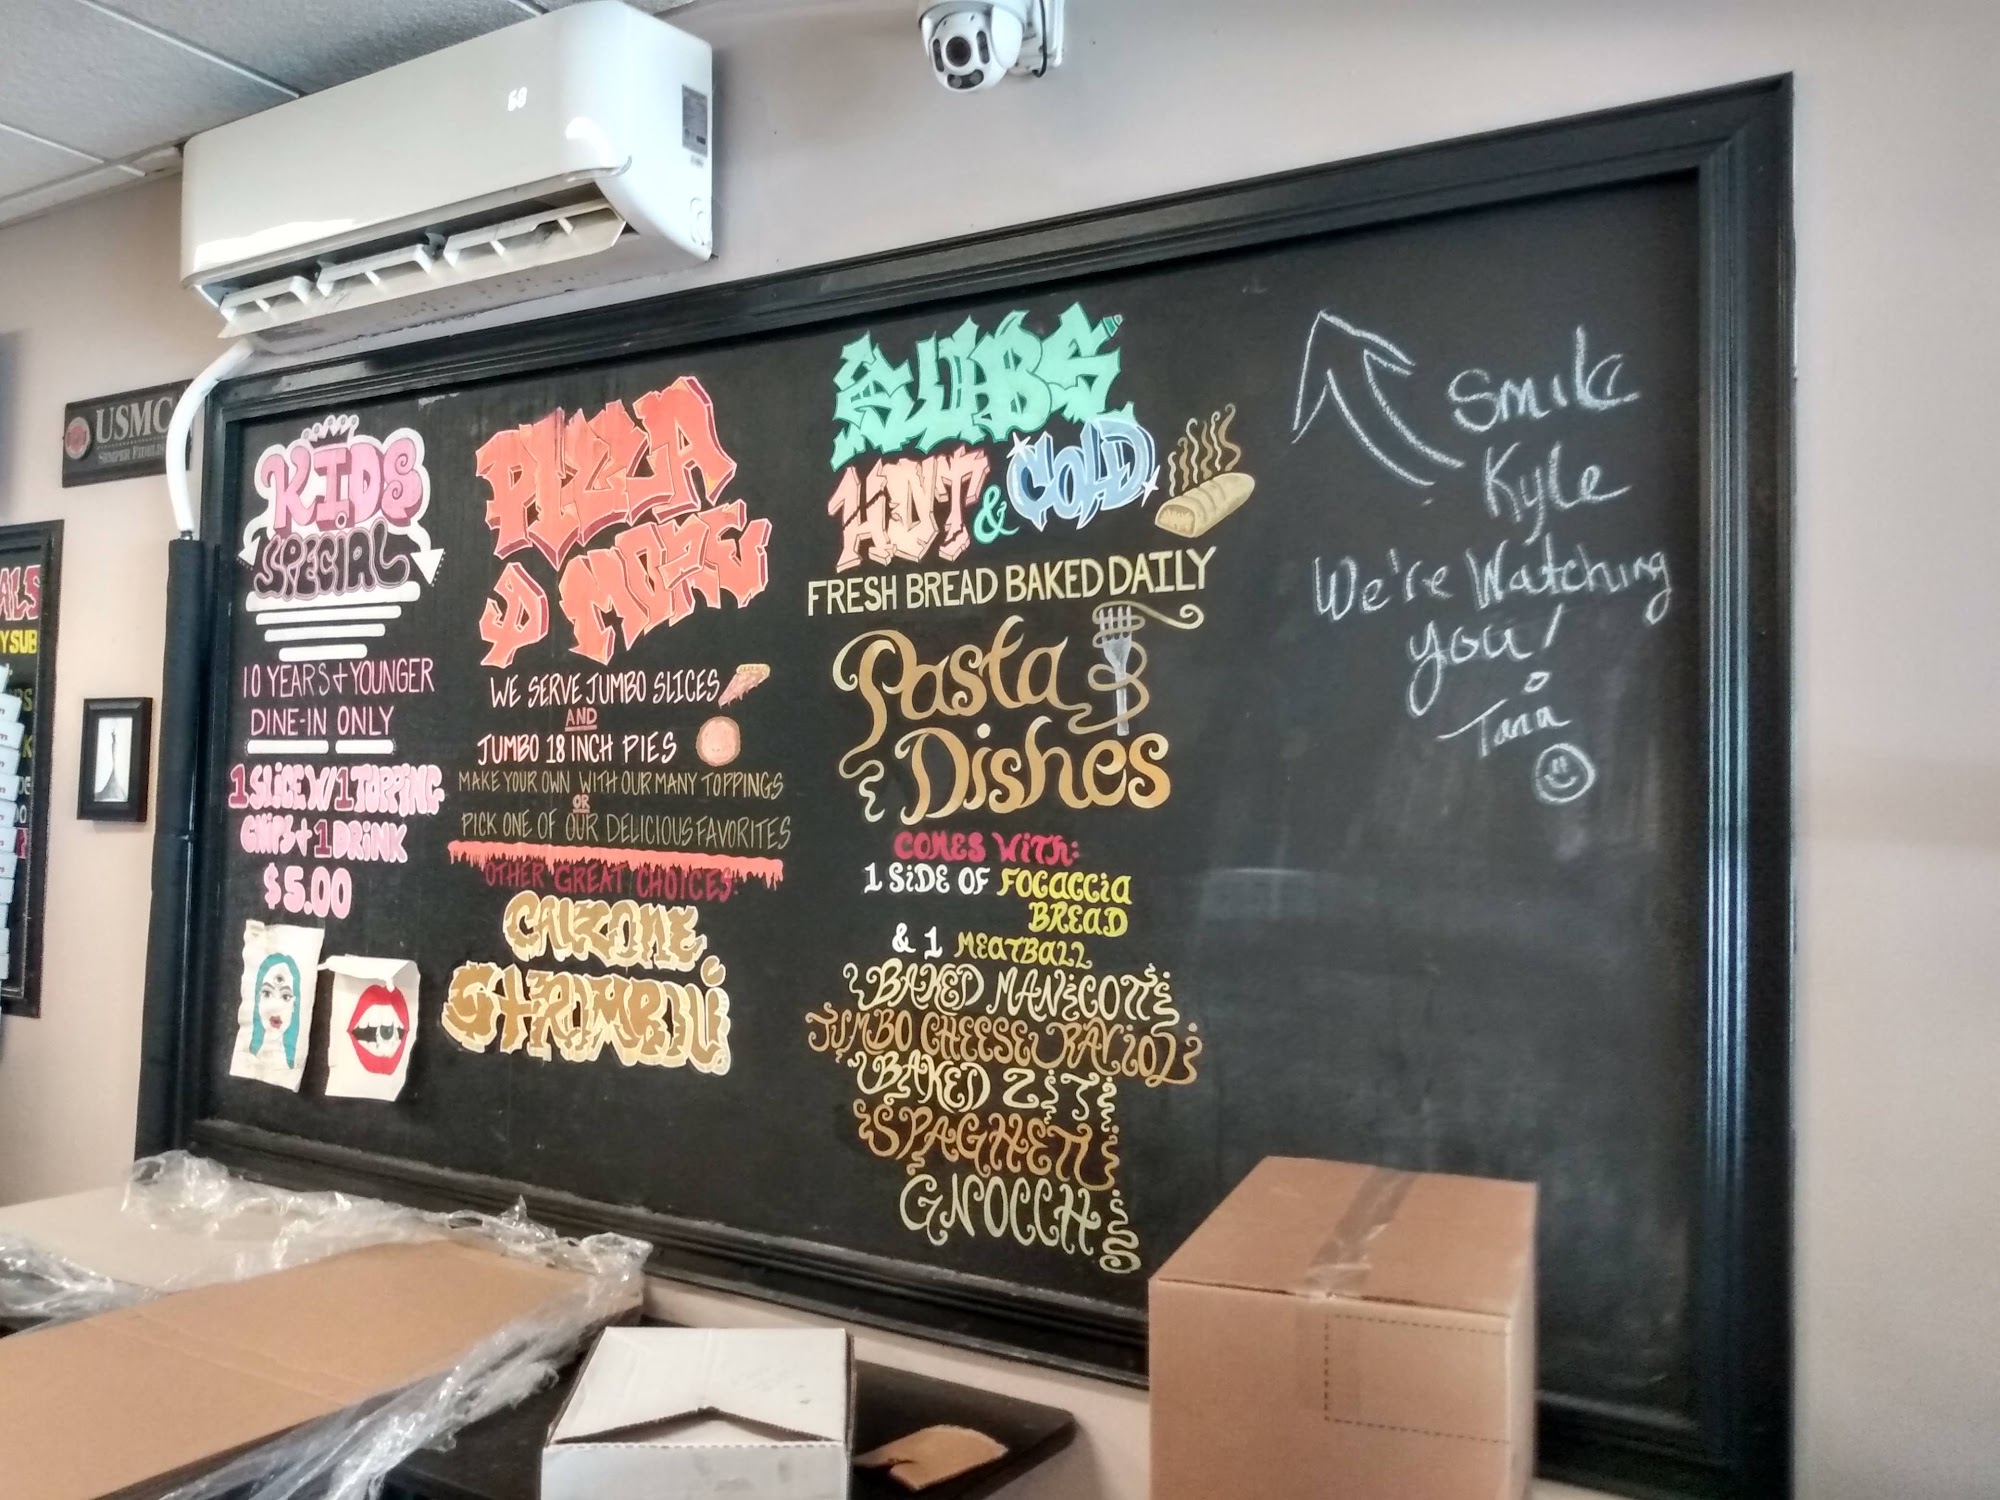 68
USMC
SEMPER FIDELIS
ALS
Y SUB
KIDS
SPECIAL
10 YEARS + YOUNGER
DINE-IN ONLY
1 SLICE W/ 1 TOPPING
CHIPS + 1 DRINK
$5.00
PIZZA
& MORE
WE SERVE JUMBO SLICES
AND
JUMBO 18 INCH PIES
MAKE YOUR OWN WITH OUR MANY TOPPINGS
OR
PICK ONE OF OUR DELICIOUS FAVORITES
OTHER GREAT CHOICES:
CALZONE
STROMBOLI
SUBS
HOT & COLD
FRESH BREAD BAKED DAILY
Pasta
Dishes
COMES WITH:
1 SIDE OF FOCACCIA
BREAD
& 1 MEATBALL
BAKED MANICOTTI
JUMBO CHEESE RAVIOLI
BAKED ZITI
SPAGHETTI
GNOCCHI
Smile
Kyle
We're Watching
you!
Tana